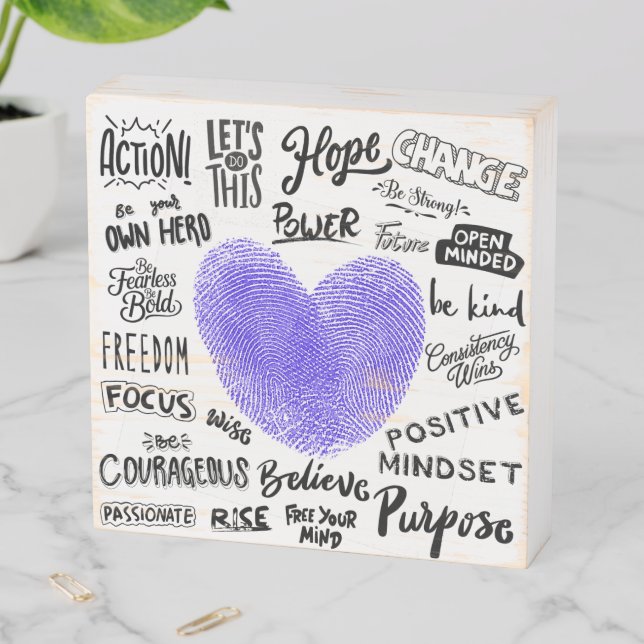 ACTION!
LET'S
DO
THIS
Hope
CHANGE
Be Strong!
Be your
OWN HERO
POWER
Future
OPEN
MINDED
Be
Fearless
Be
Bold
be kind
FREEDOM
Consistency
Wins
FOCUS
Wise
POSITIVE
MINDSET
Be
COURAGEOUS
Believe
Purpose
PASSIONATE
RISE
FREE YOUR
MIND